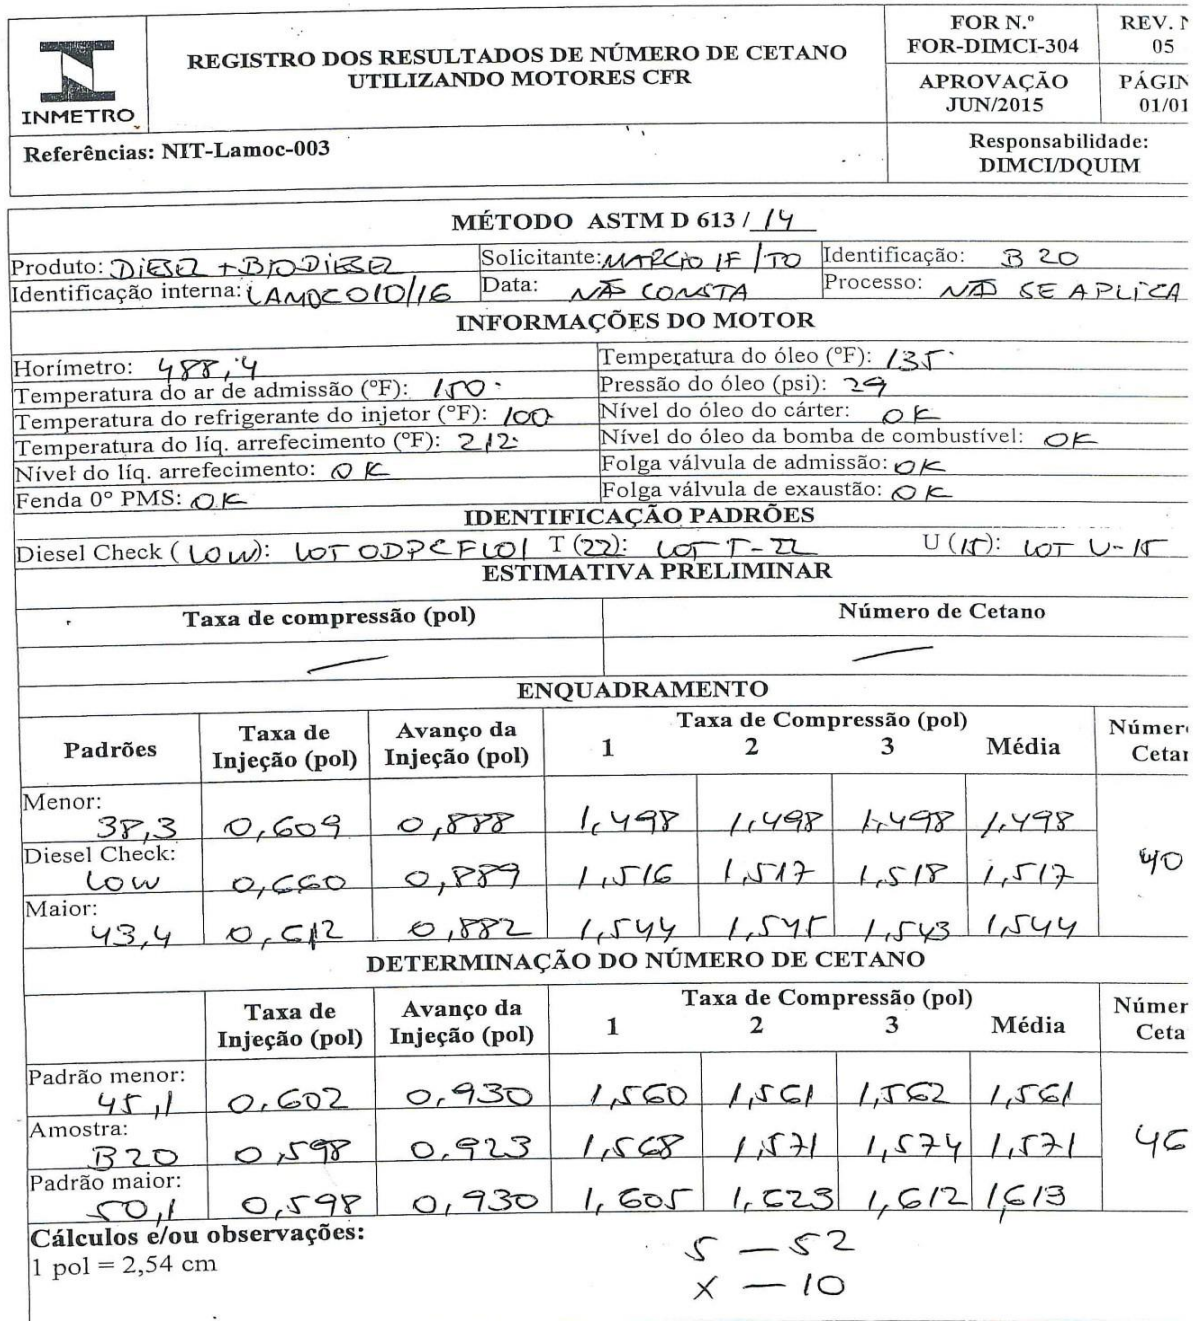 INMETRO
REGISTRO DOS RESULTADOS DE NÚMERO DE CETANO
UTILIZANDO MOTORES CFR
FOR N.º
FOR-DIMCI-304
REV.
05
APROVAÇÃO
JUN/2015
PÁGIN
01/01
Referências: NIT-Lamoc-003
Responsabilidade:
DIMCI/DQUIM
MÉTODO ASTM D 613 / 14
Produto: DIESEL + BIODIESEL Solicitante: MARCIO IF / TO Identificação: B 20
Identificação interna: LAMOC 010/16 Data: NÃO CONSTA Processo: NÃO SE APLICA
INFORMAÇÕES DO MOTOR
Horímetro: 488,4 Temperatura do óleo (ºF): 135
Temperatura do ar de admissão (ºF): 150 Pressão do óleo (psi): 29
Temperatura do refrigerante do injetor (ºF): 100 Nível do óleo do cárter: OK
Temperatura do líq. arrefecimento (ºF): 212 Nível do óleo da bomba de combustível: OK
Nível do líq. arrefecimento: OK Folga válvula de admissão: OK
Fenda 0º PMS: OK Folga válvula de exaustão: OK
IDENTIFICAÇÃO PADRÕES
Diesel Check (LOW): LOT ODPCFL01 T (22): LOT T-22 U (15): LOT U-15
ESTIMATIVA PRELIMINAR
Taxa de compressão (pol) Número de Cetano
— —
ENQUADRAMENTO
Padrões Taxa de Injeção (pol) Avanço da Injeção (pol) Taxa de Compressão (pol) Númer
1 2 3 Média Cetan
Menor:
38,3 0,609 0,888 1,498 1,498 1,498 1,498
Diesel Check:
LOW 0,660 0,889 1,516 1,517 1,518 1,517 40
Maior:
43,4 0,612 0,882 1,544 1,545 1,543 1,544
DETERMINAÇÃO DO NÚMERO DE CETANO
Taxa de Injeção (pol) Avanço da Injeção (pol) Taxa de Compressão (pol) Númer
1 2 3 Média Ceta
Padrão menor:
45,1 0,602 0,930 1,560 1,561 1,562 1,561
Amostra:
B20 0,598 0,923 1,568 1,571 1,574 1,571 46
Padrão maior:
50,1 0,598 0,930 1,605 1,623 1,612 1,613
Cálculos e/ou observações:
1 pol = 2,54 cm
5 — 52
x — 10